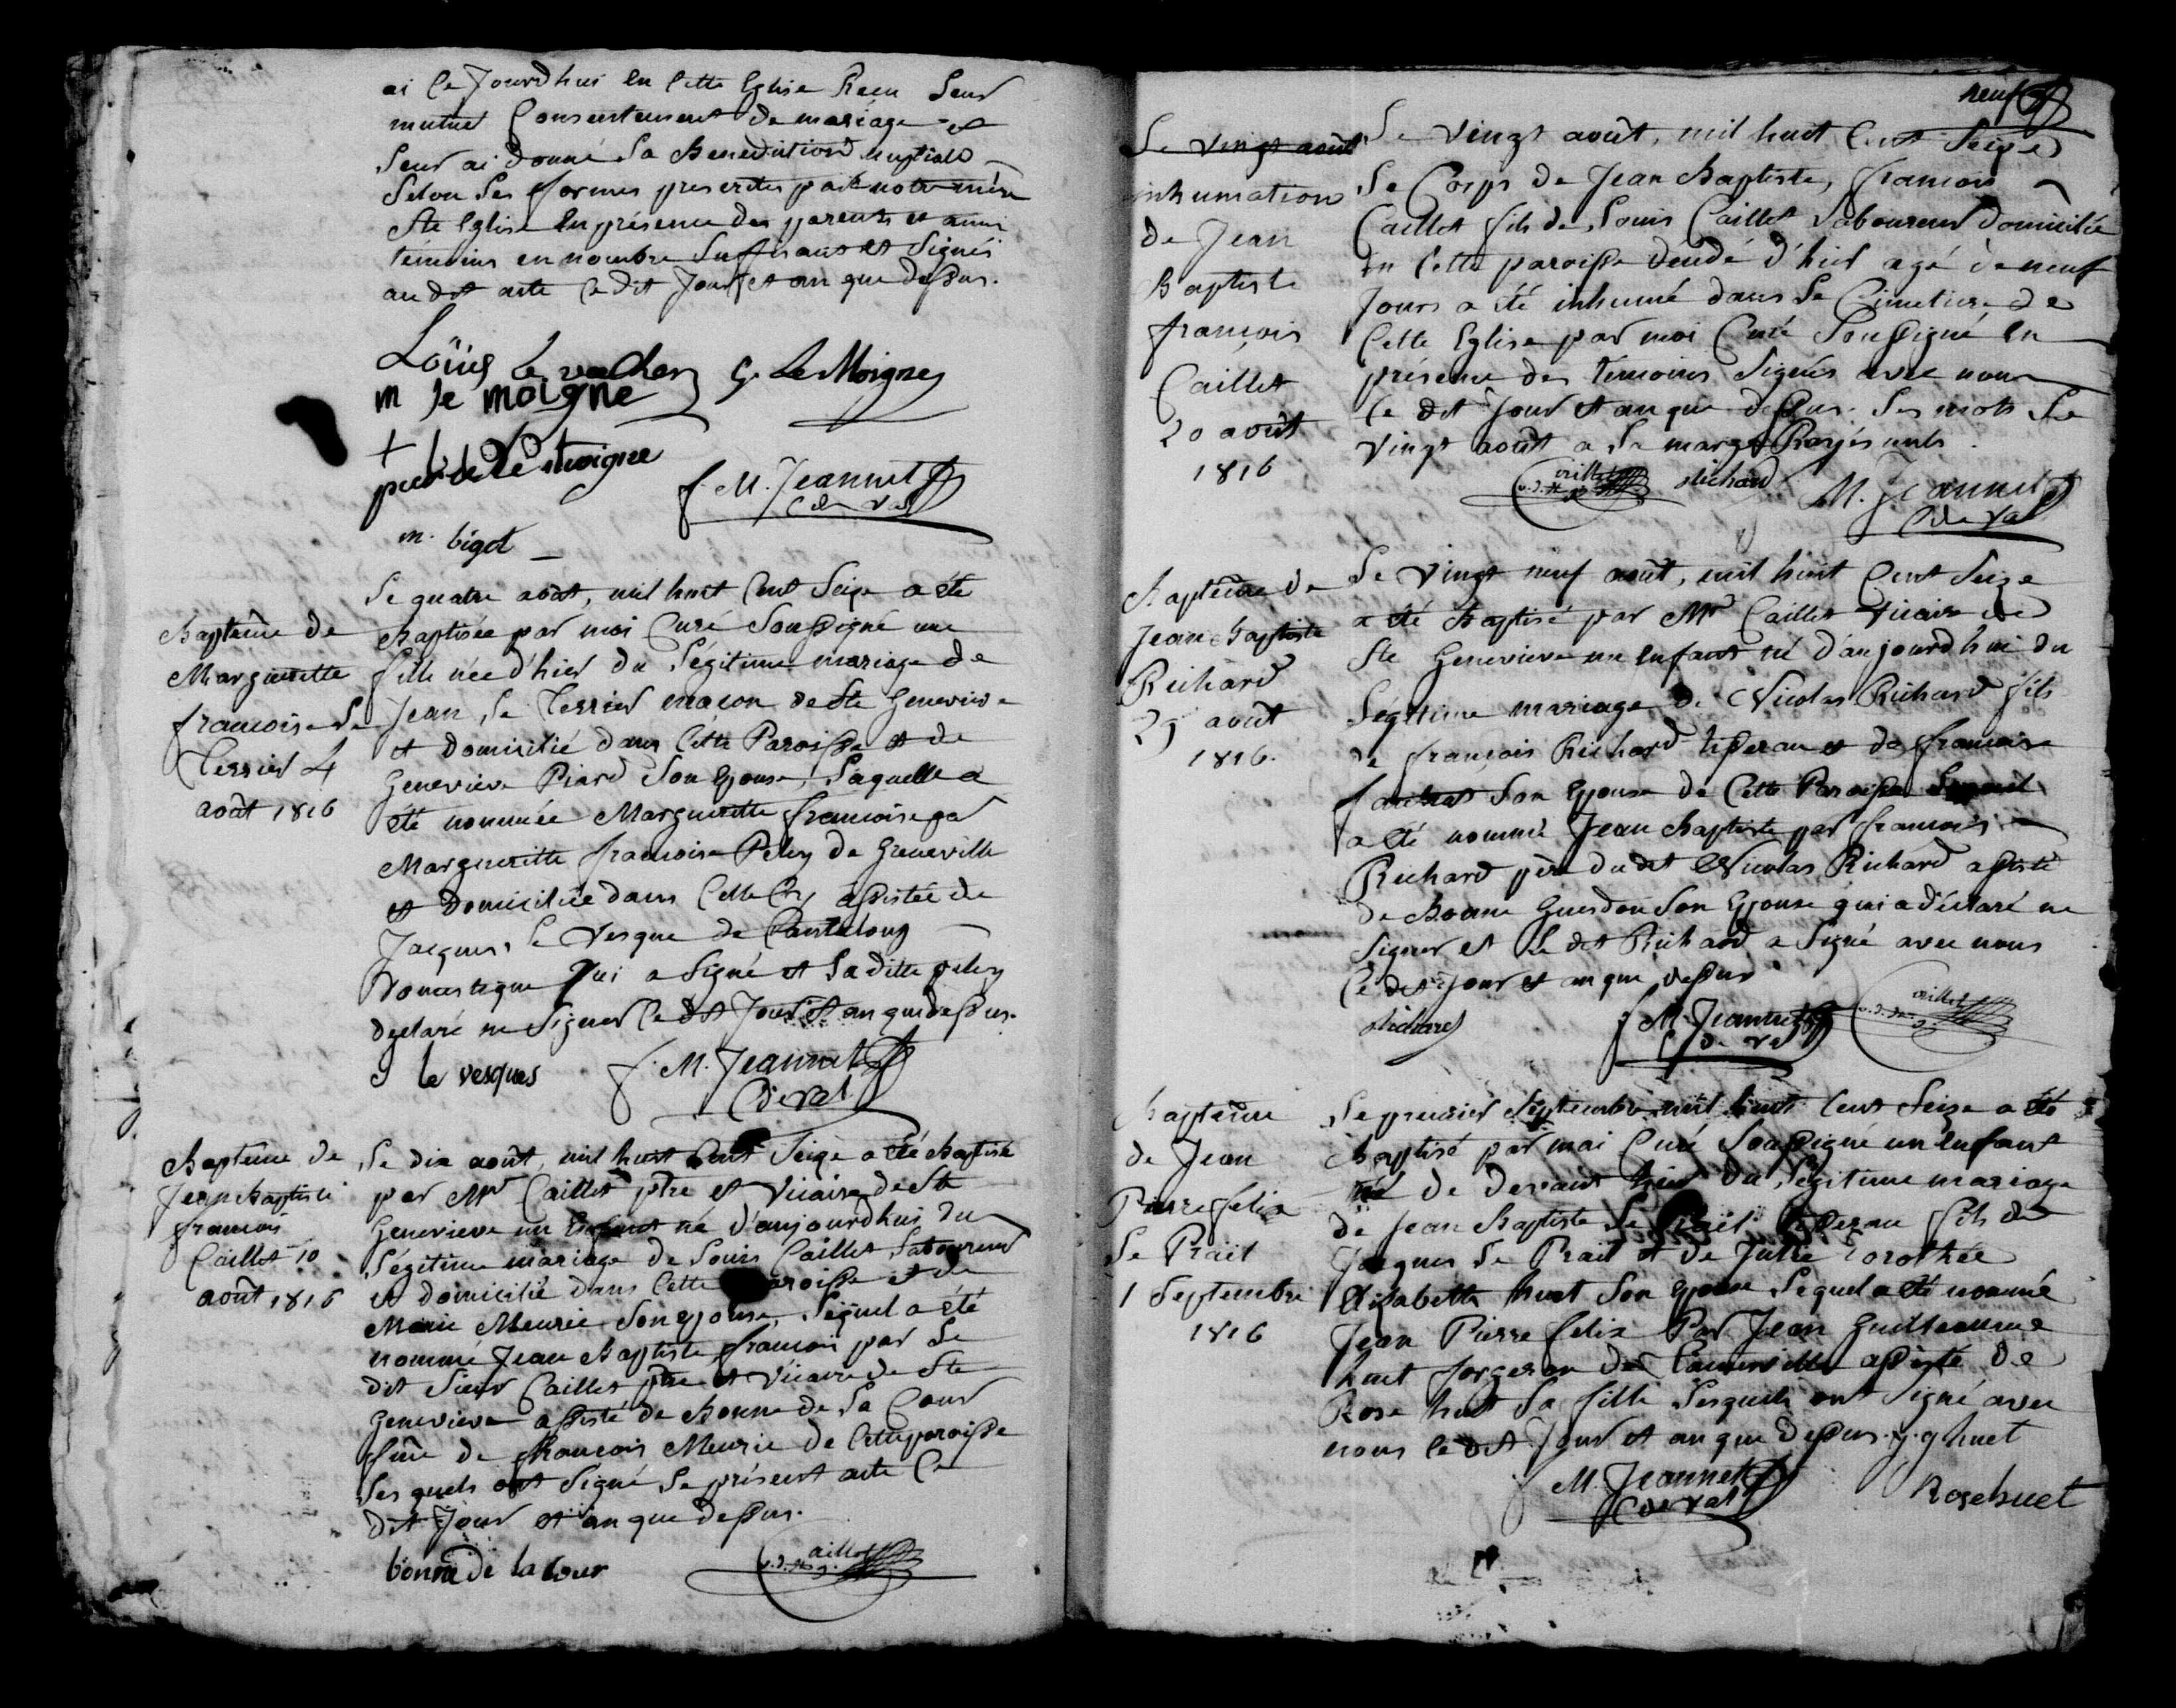 ai Ce Jourdhui en Cette Eglise Recu Leur
mutuel Consentement de mariage et
Leur ai donné La Benediction nuptiale
Selon Les formes prescrites par notre mère
Ste Eglise en présence des parents et amis
témoins en nombre Suffisant et Signés
au dit acte Ce dit Jour et an que dessus.
Loüis Le vacher G. Le Moigne
m le moigne
pierre le moigne
f. M. Jeannet
C de Val
m. bigot
Baptême de
Margueritte
francoise Le
Terrier 4
août 1816
Le quatre août, mil huit Cent Seize a été
Baptisée par moi Curé Soussigné une
fille née d'hier du Légitime mariage de
Jean Le Terrier macon de Ste Genevieve
et domicilié dans Cette Paroisse et de
Genevieve Piard Son Epouse, Laquelle a
été nommée Margueritte francoise par
Margueritte francoise Peley de Greneville
et domiciliée dans Cette assistée de
Jacques Le Vesque de Canteloup
Domestique qui a Signé et La ditte peley
declaré ne Signer Ce dit Jour et an que dessus.
le vesques f. M. Jeannet
C de Val
Baptême de
Jean Baptiste
francois
Caillet 10
août 1816
Le dix août, mil huit Cent Seize a été Baptisé
par Mr Caillet ptre et Vicaire de Ste
Genevieve un Enfant né d'aujourdhui du
Légitime mariage de Louis Caillet Laboureur
et domicilié dans Cette Paroisse et de
Marie Meurie Son epouse, Lequel a été
nommé Jean Baptiste francois par Le
dit Sieur Caillet ptre et Vicaire de Ste
Genevieve assisté de Bonne de La Cour
fme de francois Meurie de Cette paroisse
Lesquels ont Signé Le présent acte Ce
dit Jour et an que dessus.
bonne de la cour Caillet
neuf
Le vingt août
inhumation
de Jean
Baptiste
françois
Caillet
20 août
1816
Le Vingt août, mil huit Cent Seize
Le Corps de Jean Baptiste, francois
Caillet fils de Louis Caillet Laboureur domicilié
en Cette paroisse décédé d'hier agé de neuf
Jours a été inhumé dans Le Cimetiere de
Cette Eglise par moi Curé Soussigné en
présence des témoins Signés avec nous
Ce dit Jour et an que dessus. Les mots Le
vingt août a La marge Rayés nuls.
Caillet Richard M. Jeannet
C de Val
Baptême de
Jean Baptiste
Richard
29 août
1816.
Le Vingt neuf août, mil huit Cent Seize
a été Baptisé par Mr Caillet Vicaire de
Ste Genevieve un Enfant né d'aujourdhui du
Légitime mariage de Nicolas Richard fils
de françois Richard tisseran et de francoise
Son Epouse de Cette Paroisse Lequel
a été nommé Jean Baptiste par francois
Richard père du dit Nicolas Richard assisté
de Bonne Guesdon Son Epouse qui a déclaré ne
Signer et Le dit Richard a Signé avec nous
Ce dit Jour et an que dessus
Richard f. M. Jeannet Caillet
C de Val
Baptême
de Jean
Pierre felix
Le Prait
1 Septembre
1816
Le premier Septembre mil huit Cent Seize a été
Baptisé par moi Curé Soussigné un Enfant
né de devant hier du Légitime mariage
de Jean Baptiste Le Prait tisseran fils de
Jacques Le Prait et de Julie Dorothée
Elisabeth huet Son Epouse Lequel a été nommé
Jean Pierre felix Par Jean Guilleaume
huet forgeron de assisté de
Rose huet Sa fille Lesquels ont Signé avec
nous Ce dit Jour et an que dessus. j. g huet
f M. Jeannet
C de Val
Rose huet